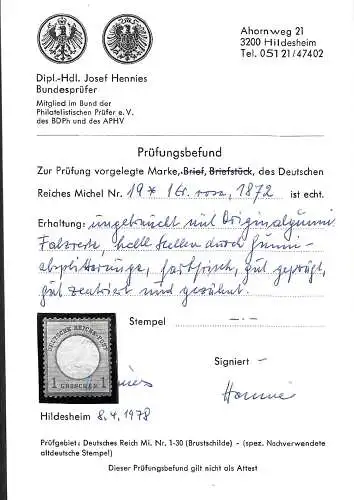 Ahornweg 21
3200 Hildesheim
Tel. 05121/47402
Dipl.-Hdl. Josef Hennies
Bundesprüfer
Mitglied im Bund der
Philatelistischen Prüfer e. V.
des BDPh und des APHV
Prüfungsbefund
Zur Prüfung vorgelegte Marke, Brief, Briefstück, des Deutschen
Reiches Michel Nr. 19* 1 Gr. rosa, 1872 ist echt.
Erhaltung: ungebraucht mit Originalgummi
Falzreste, helle Stellen durch Gummi-
absplitterungen, farbfrisch, gut geprägt,
gut zentriert und gezähnt.
Stempel -.-
DEUTSCHE REICHS-POST
1 GROSCHEN 1
Signiert -
Hennies
Hildesheim 8.4.1978
Prüfgebiet: Deutsches Reich Mi. Nr. 1-30 (Brustschilde) - (spez. Nachverwendete
altdeutsche Stempel)
Dieser Prüfungsbefund gilt nicht als Attest